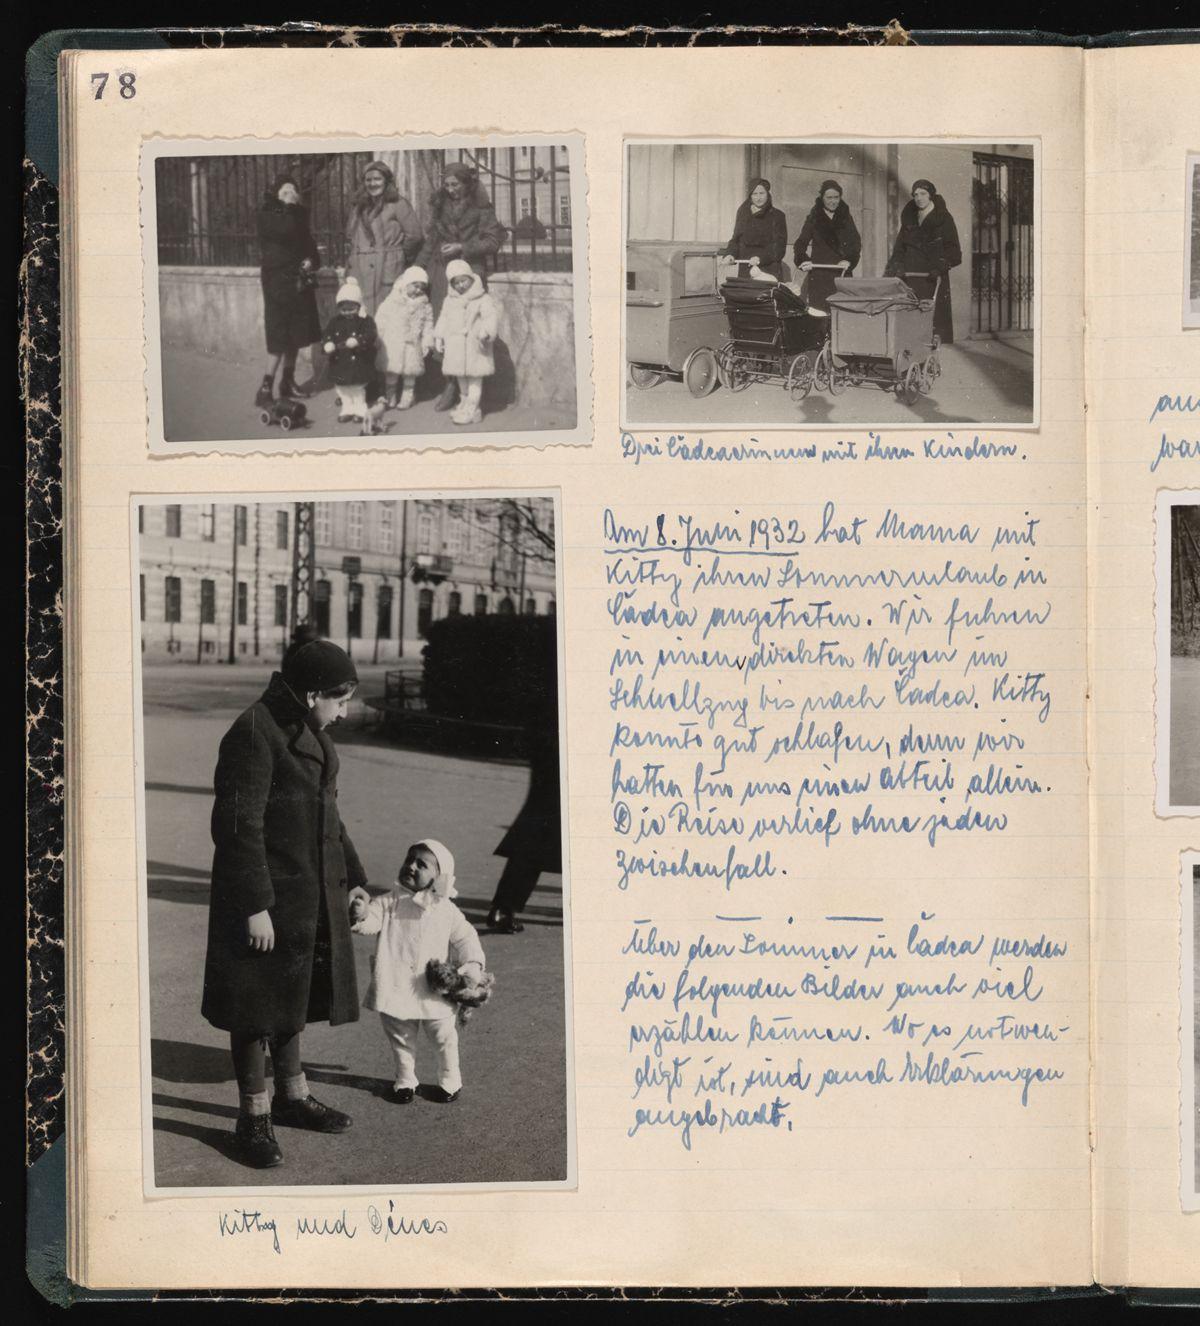 78
Drei Čadcaerinnen mit ihren Kindern.
Am 8. Juni 1932 hat Mama mit
Kitty ihren Sommerurlaub in
Čadca angetreten. Wir fuhren
in einem direkten Wagen im
Schnellzug bis nach Čadca. Kitty
konnte gut schlafen, denn wir
hatten für uns einen Abteil allein.
Die Reise verlief ohne jeden
Zwischenfall.
Über den Sommer in Čadca werden
die folgenden Bilder auch viel
erzählen können. Wo es notwen-
digt ist, sind auch Erklärungen
angebracht.
Kitty und Dénes